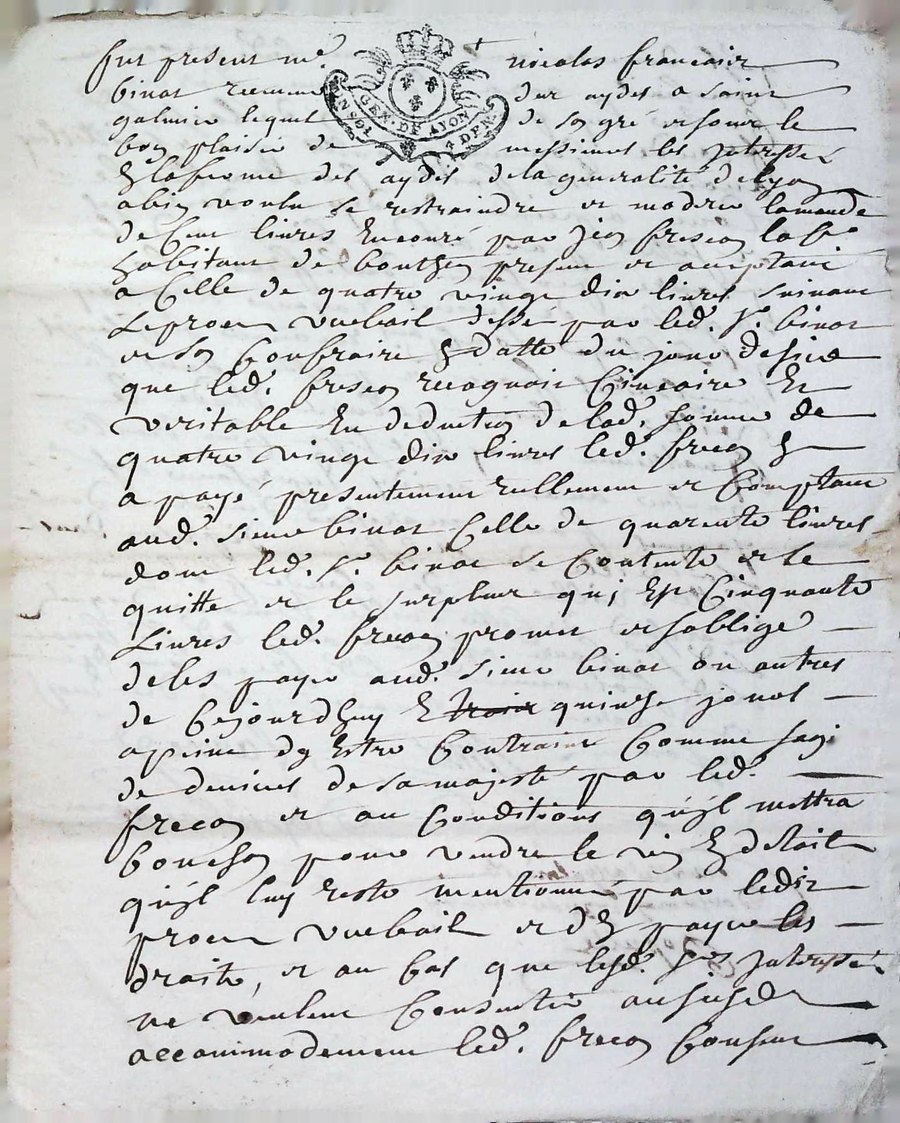 fut present me. nicolas francois
binot receveur des aydes a saint
galmier lequel de son gré et sous le
bon plaisir de messieurs les interessés
GEN. DE LYON
UN SOL 4 DEN.
En la ferme des aydes de la generalité de Lyon
a bien voulu se restraindre et moderer lamande
de Cent livres Encouru par frecon
habitant de bouthe present et aceptant
a Celle de quatre vingt dix livres suivant
Le proces verbail dressé par led. Sr. binot
et son Confraire En datte du jour
que led. frecon recognoit Cinceire Et
veritable En deduction de lad. somme de
quatre vingt dix livres led. frecon
a payé presentement reellement et Comptant
aud. sieur binot Celle de quarente livres
dont led. Sr. binot se Contente et le
quitte et le surplus qui Est Cinquante
Livres led. frecon promet et soblige
de les payer aud. sieur binot ou autres
de Cejourdhuy En trois quinze jours
a peine dy Estre Contraint Comme
de deniers de sa majesté par led.
frecon et au Conditions quil mettra
bouchon pour vendre le vin En detail
quil luy reste mentionné par ledit
proces verbail et den payer les
droits, et au Cas que lesd. Srs. interessés
ne veulent Consentir au susd.
accommodement led. frecon Consent